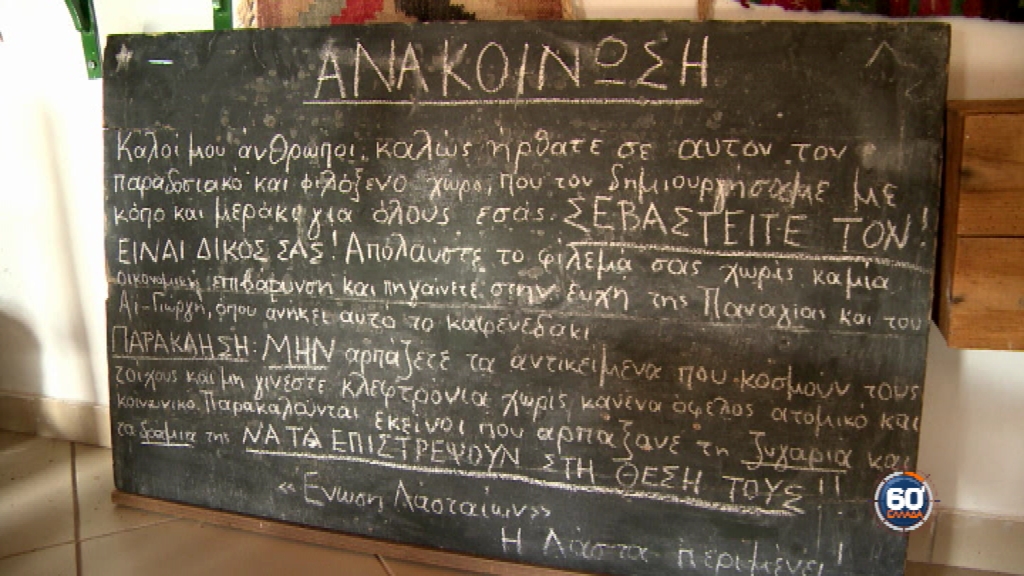 ΑΝΑΚΟΙΝΩΣΗ
Καλοί μου άνθρωποι, καλώς ήρθατε σε αυτόν τον
παραδοσιακό και φιλόξενο χώρο, που τον δημιουργήσαμε με
κόπο και μεράκι για όλους εσάς. ΣΕΒΑΣΤΕΙΤΕ ΤΟΝ!
ΕΙΝΑΙ ΔΙΚΟΣ ΣΑΣ! Απολαύστε το φίλεμα σας χωρίς καμία
οικονομική επιβάρυνση και πηγαίνετε στην ευχή της Παναγίας και του
Αϊ-Γιώργη, όπου ανήκει αυτό το καφενεδάκι
ΠΑΡΑΚΛΗΣΗ: ΜΗΝ αρπάζετε τα αντικείμενα που κοσμούν τους
τοίχους και μη γίνεστε κλεφτρόνια χωρίς κανένα όφελος ατομικό και
κοινωνικό. Παρακαλούνται εκείνοι που αρπάξανε τη ζυγαριά και
τα δράμια της ΝΑ ΤΑ ΕΠΙΣΤΡΕΨΟΥΝ ΣΤΗ ΘΕΣΗ ΤΟΥΣ!!
«Ένωση Λασταίων»
Η Λάστα περιμένει!
60'
ΕΛΛΑΔΑ